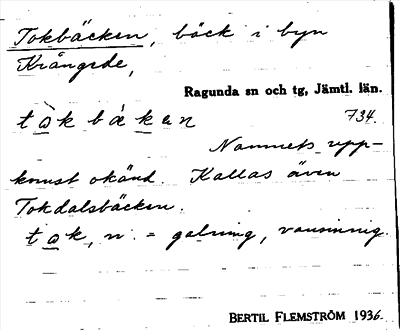 Tokbäcken, bäck i byn
Krångede,
Ragunda sn och tg, Jämtl. län.
tòk bä̀ken 734.
Namnets upp-
komst okänd. Kallas även
Tokdalsbäcken.
tok, n. = galning, vansinnig.
BERTIL FLEMSTRÖM 1936.